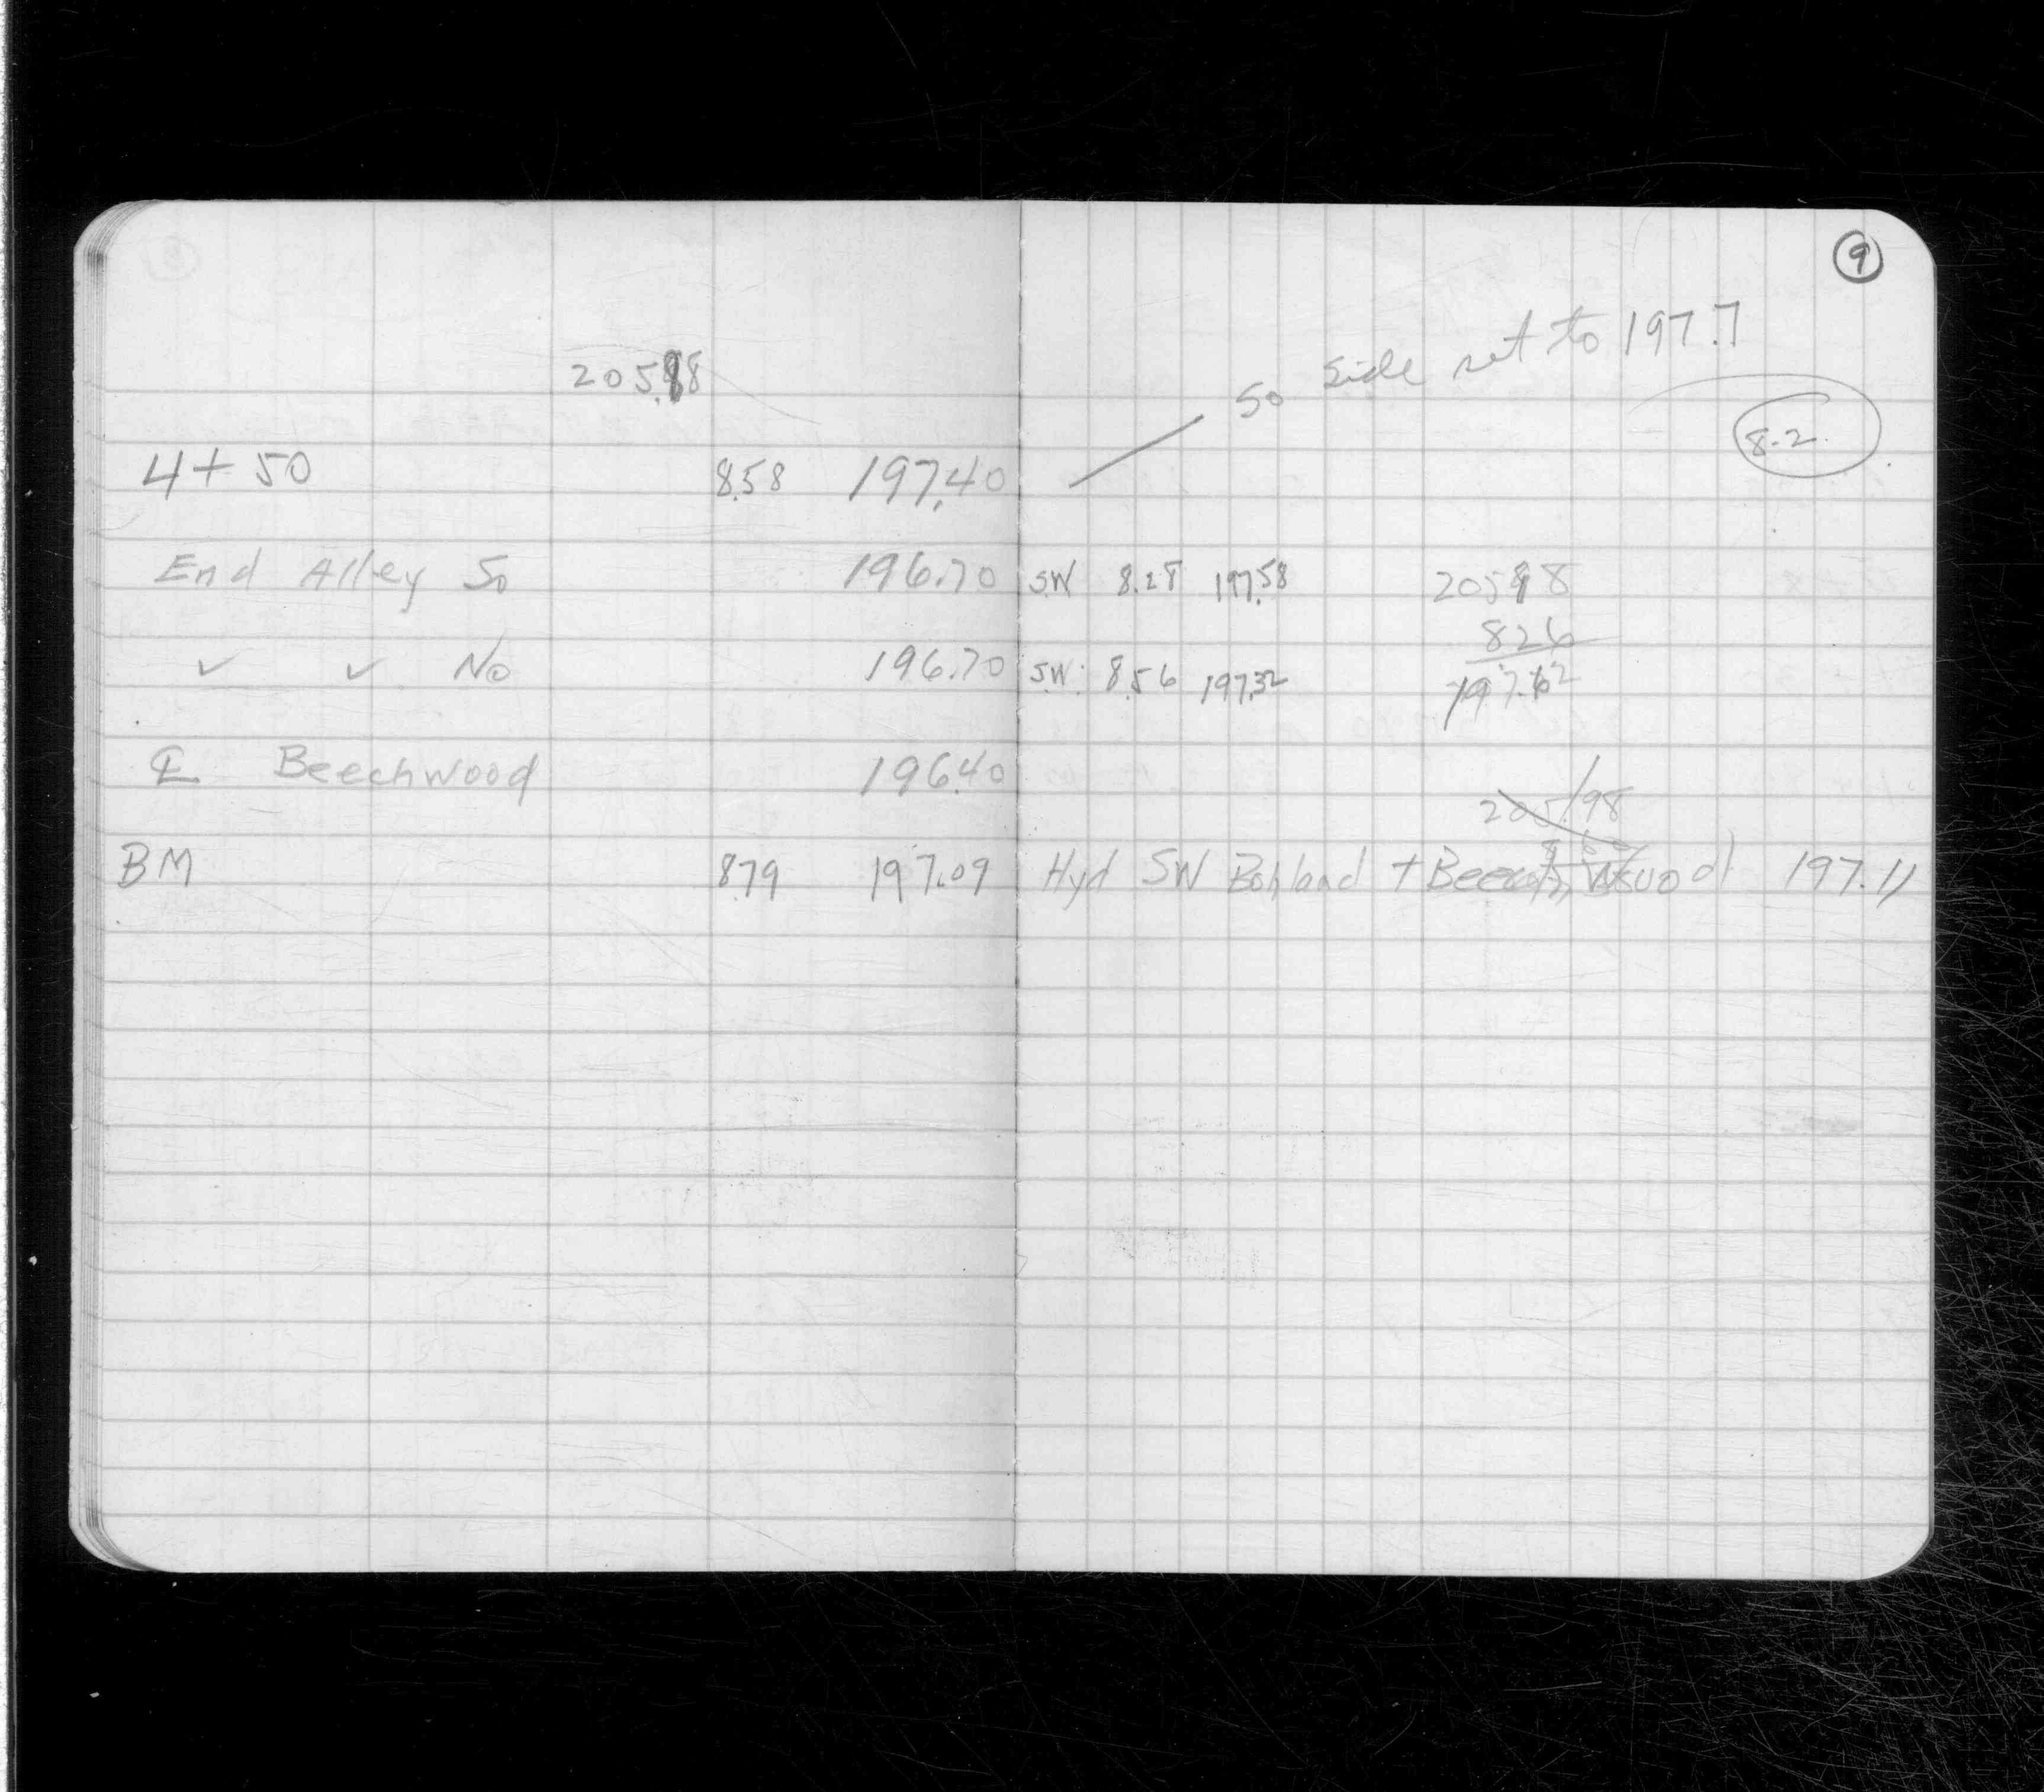 9
So Side set to 197.7
205.88
8-2.
4+50 8.58 197.40
End Alley So 196.70 SW 8.28 197.58 205 88
826
✓ ✓ No 196.70 SW: 8.56 197.32 197.62
℄ Beechwood 196.40
205.98
BM 8.79 197.09 Hyd SW Bohland + Beechwood 197.11